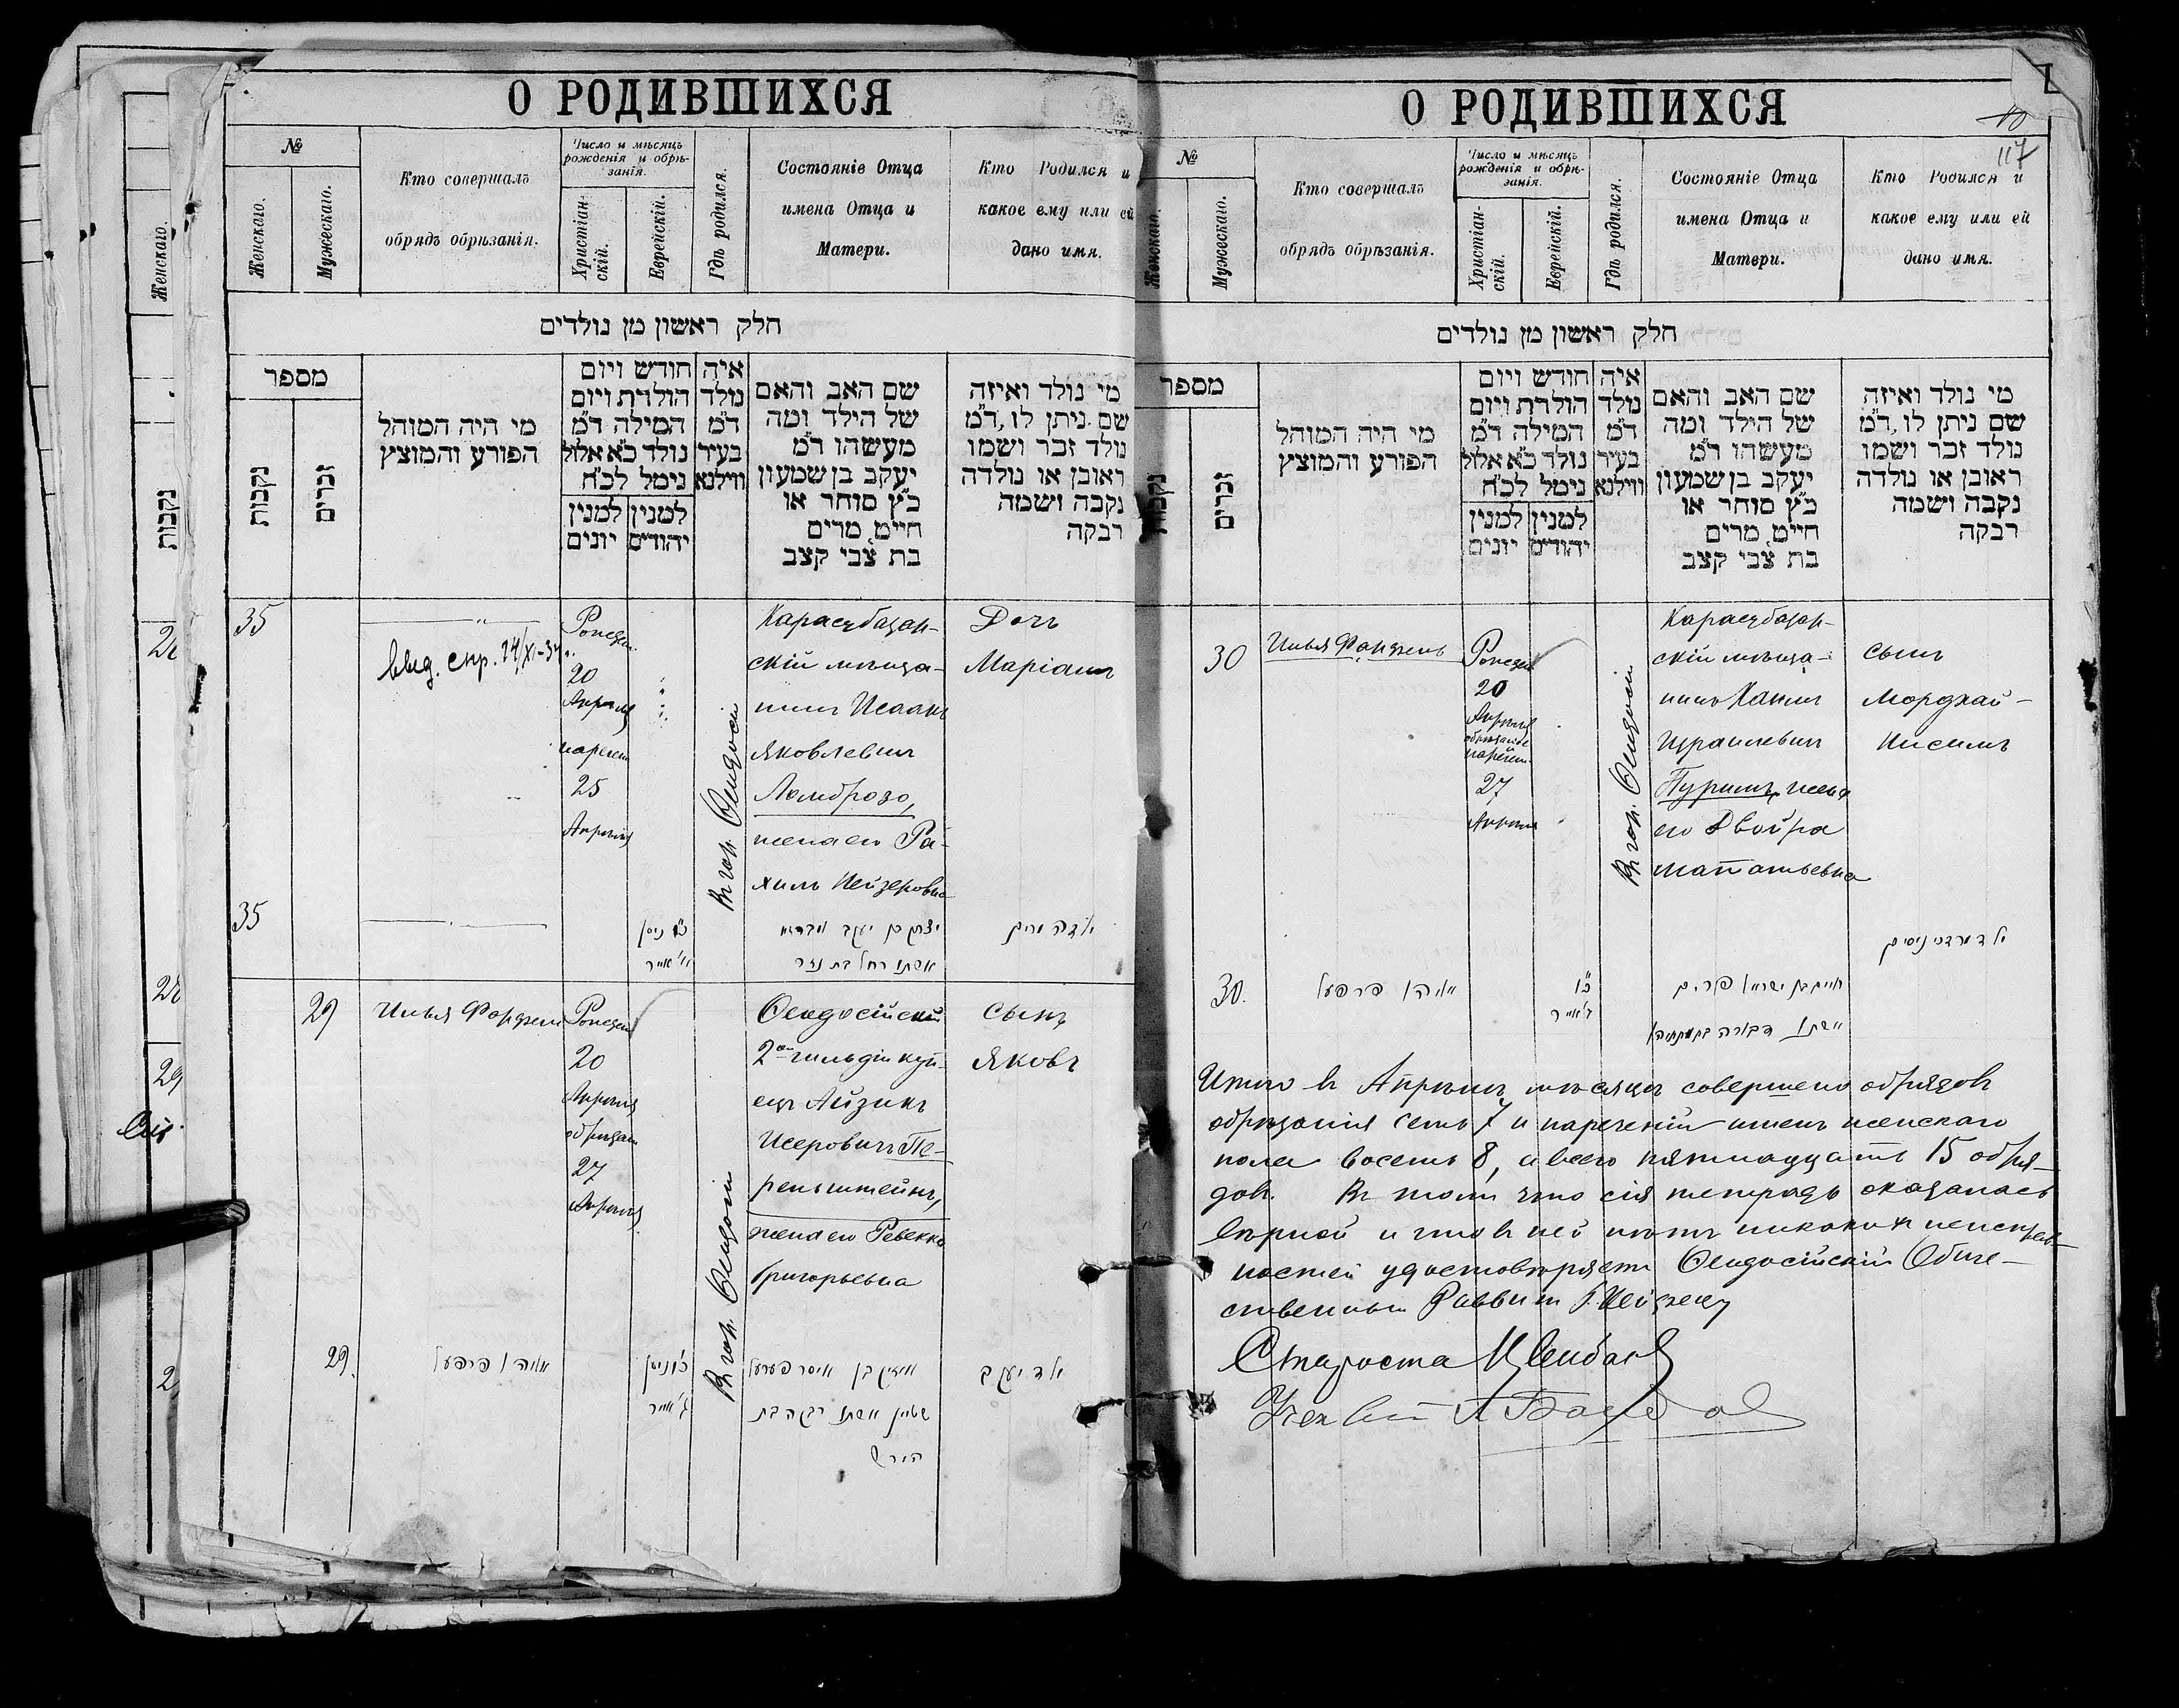 О РОДИВШИХСЯ
№
Женскаго.
Мужескаго.
Кто совершалъ
обрядъ обрѣзанія.
Число и мѣсяцъ
рожденія и обрѣ-
занія.
Христіан-
скій.
Еврейскій.
Гдѣ родился.
Состояніе Отца
имена Отца и
Матери.
Кто Родился и
какое ему или ей
дано имя.
חלק ראשון מן נולדים
מספר
נקבות
זכרים
מי היה המוהל
הפורע והמוצץ
חודש ויום
הולדת ויום
המילה ד״מ
נולד כ״א אלול
נימל לכ״ח
למנין יהודים
למנין יונים
איה
נולד
ד״מ
בעיר
ווילנא
שם האב והאם
של הילד ומה
מעשהו ד״מ
יעקב בן שמעון
כ״ץ סוחר או
חייט, מרים
בת צבי קצב
מי נולד ואיזה
שם ניתן לו, ד״מ
נולד זכר ושמו
ראובן או נולדה
נקבה ושמה
רבקה
35
выд. спр. 24/XI-34
20
Апрѣля
наречен
25
Апрѣля
Въ гор. Ѳеодосіи
Карасубазар-
скій мѣща-
нинъ Исаакъ
Яковлевичъ
Ломброзо,
жена его Ра-
хиль
Дочь
Маріамъ
35
יצחק בן יעקב
אשתו רחל בת
ילדה מרים
29
Илья
20
Апрѣля
27
Апрѣля
Въ гор. Ѳеодосіи
Ѳеодосійскій
2ой гильдіи куп-
ецъ Айзикъ
Исеровичъ Пе-
рельштейнъ,
жена его Ревекка
Григорьевна
Сынъ
Яковъ
29.
אשתו רבקה בת
הירש
ילד יעקב
О РОДИВШИХСЯ
10
117
№
Женскаго.
Мужескаго.
Кто совершалъ
обрядъ обрѣзанія.
Число и мѣсяцъ
рожденія и обрѣ-
занія.
Христіан-
скій.
Еврейскій.
Гдѣ родился.
Состояніе Отца
имена Отца и
Матери.
Кто Родился и
какое ему или ей
дано имя.
חלק ראשון מן נולדים
מספר
נקבות
זכרים
מי היה המוהל
הפורע והמוצץ
חודש ויום
הולדת ויום
המילה ד״מ
נולד כ״א אלול
נימל לכ״ח
למנין יהודים
למנין יונים
איה
נולד
ד״מ
בעיר
ווילנא
שם האב והאם
של הילד ומה
מעשהו ד״מ
יעקב בן שמעון
כ״ץ סוחר או
חייט, מרים
בת צבי קצב
מי נולד ואיזה
שם ניתן לו, ד״מ
נולד זכר ושמו
ראובן או נולדה
נקבה ושמה
רבקה
30
Илья
20
Апрѣля
27
Апрѣля
Въ гор. Ѳеодосіи
Карасубазар-
скій мѣща-
нинъ Хаимъ
Израилевичъ
Пуримъ, жена
его Двойра
Мататьевна
Сынъ
Мордхай-
Нисимъ
ילד מרדכי ניסים
30.
חיים בן ישראל פורים
אשתו דבורה
Итого въ Апрѣлѣ мѣсяцѣ совершено обрядовъ
обрѣзанія семь 7 и нареченій именъ женскаго
пола восемь 8, а всего пятнадцать 15 обря-
довъ. Въ томъ что сія тетрадь оказалась
вѣрной и что въ ней нѣтъ никакихъ неисправ-
ностей удостовѣряетъ Ѳеодосійскій Обще-
ственный Раввинъ
Староста